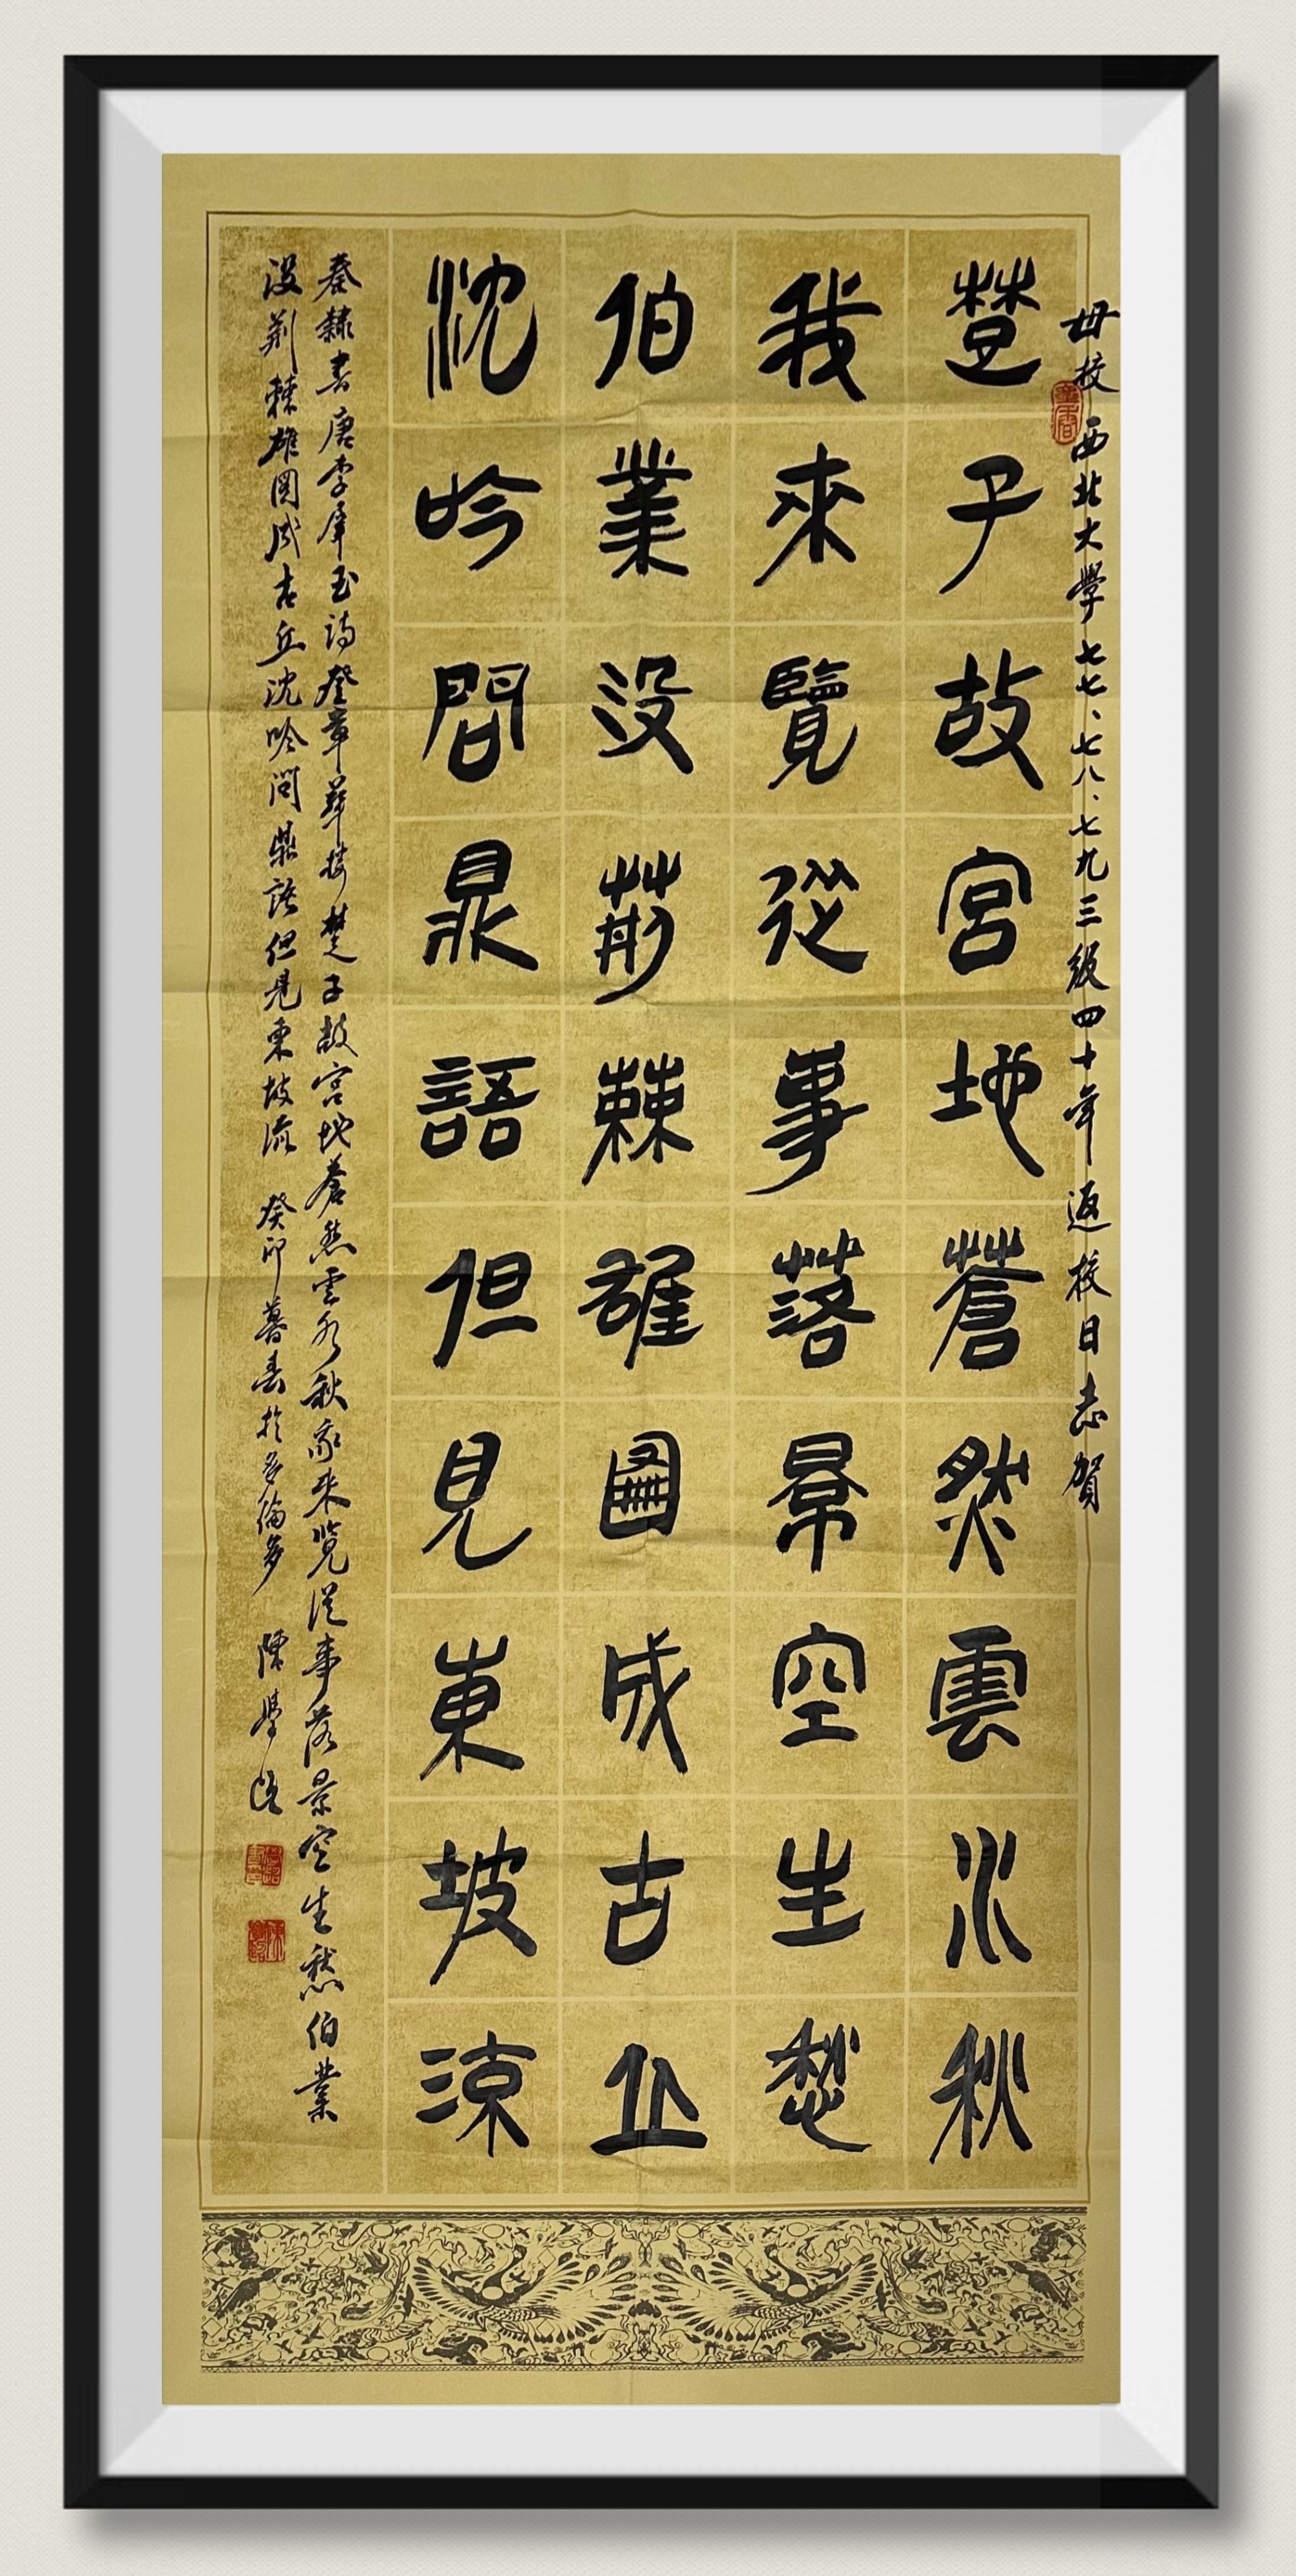 母校西北大學七七、七八、七九三級四十年返校日志賀
楚子故宮地蒼然雲水秋
我來覽從事落景空生愁
伯業没荊棘雄圖成古丘
沈吟問鼎語但見東坡流
秦隸書唐李羣玉詩登章華樓楚子故宮地蒼然雲水秋我来覽從事落景空生愁伯業
没荊棘雄圖成古丘沈吟問鼎語但見東坡流 癸卯暮春於多倫多 陳學超